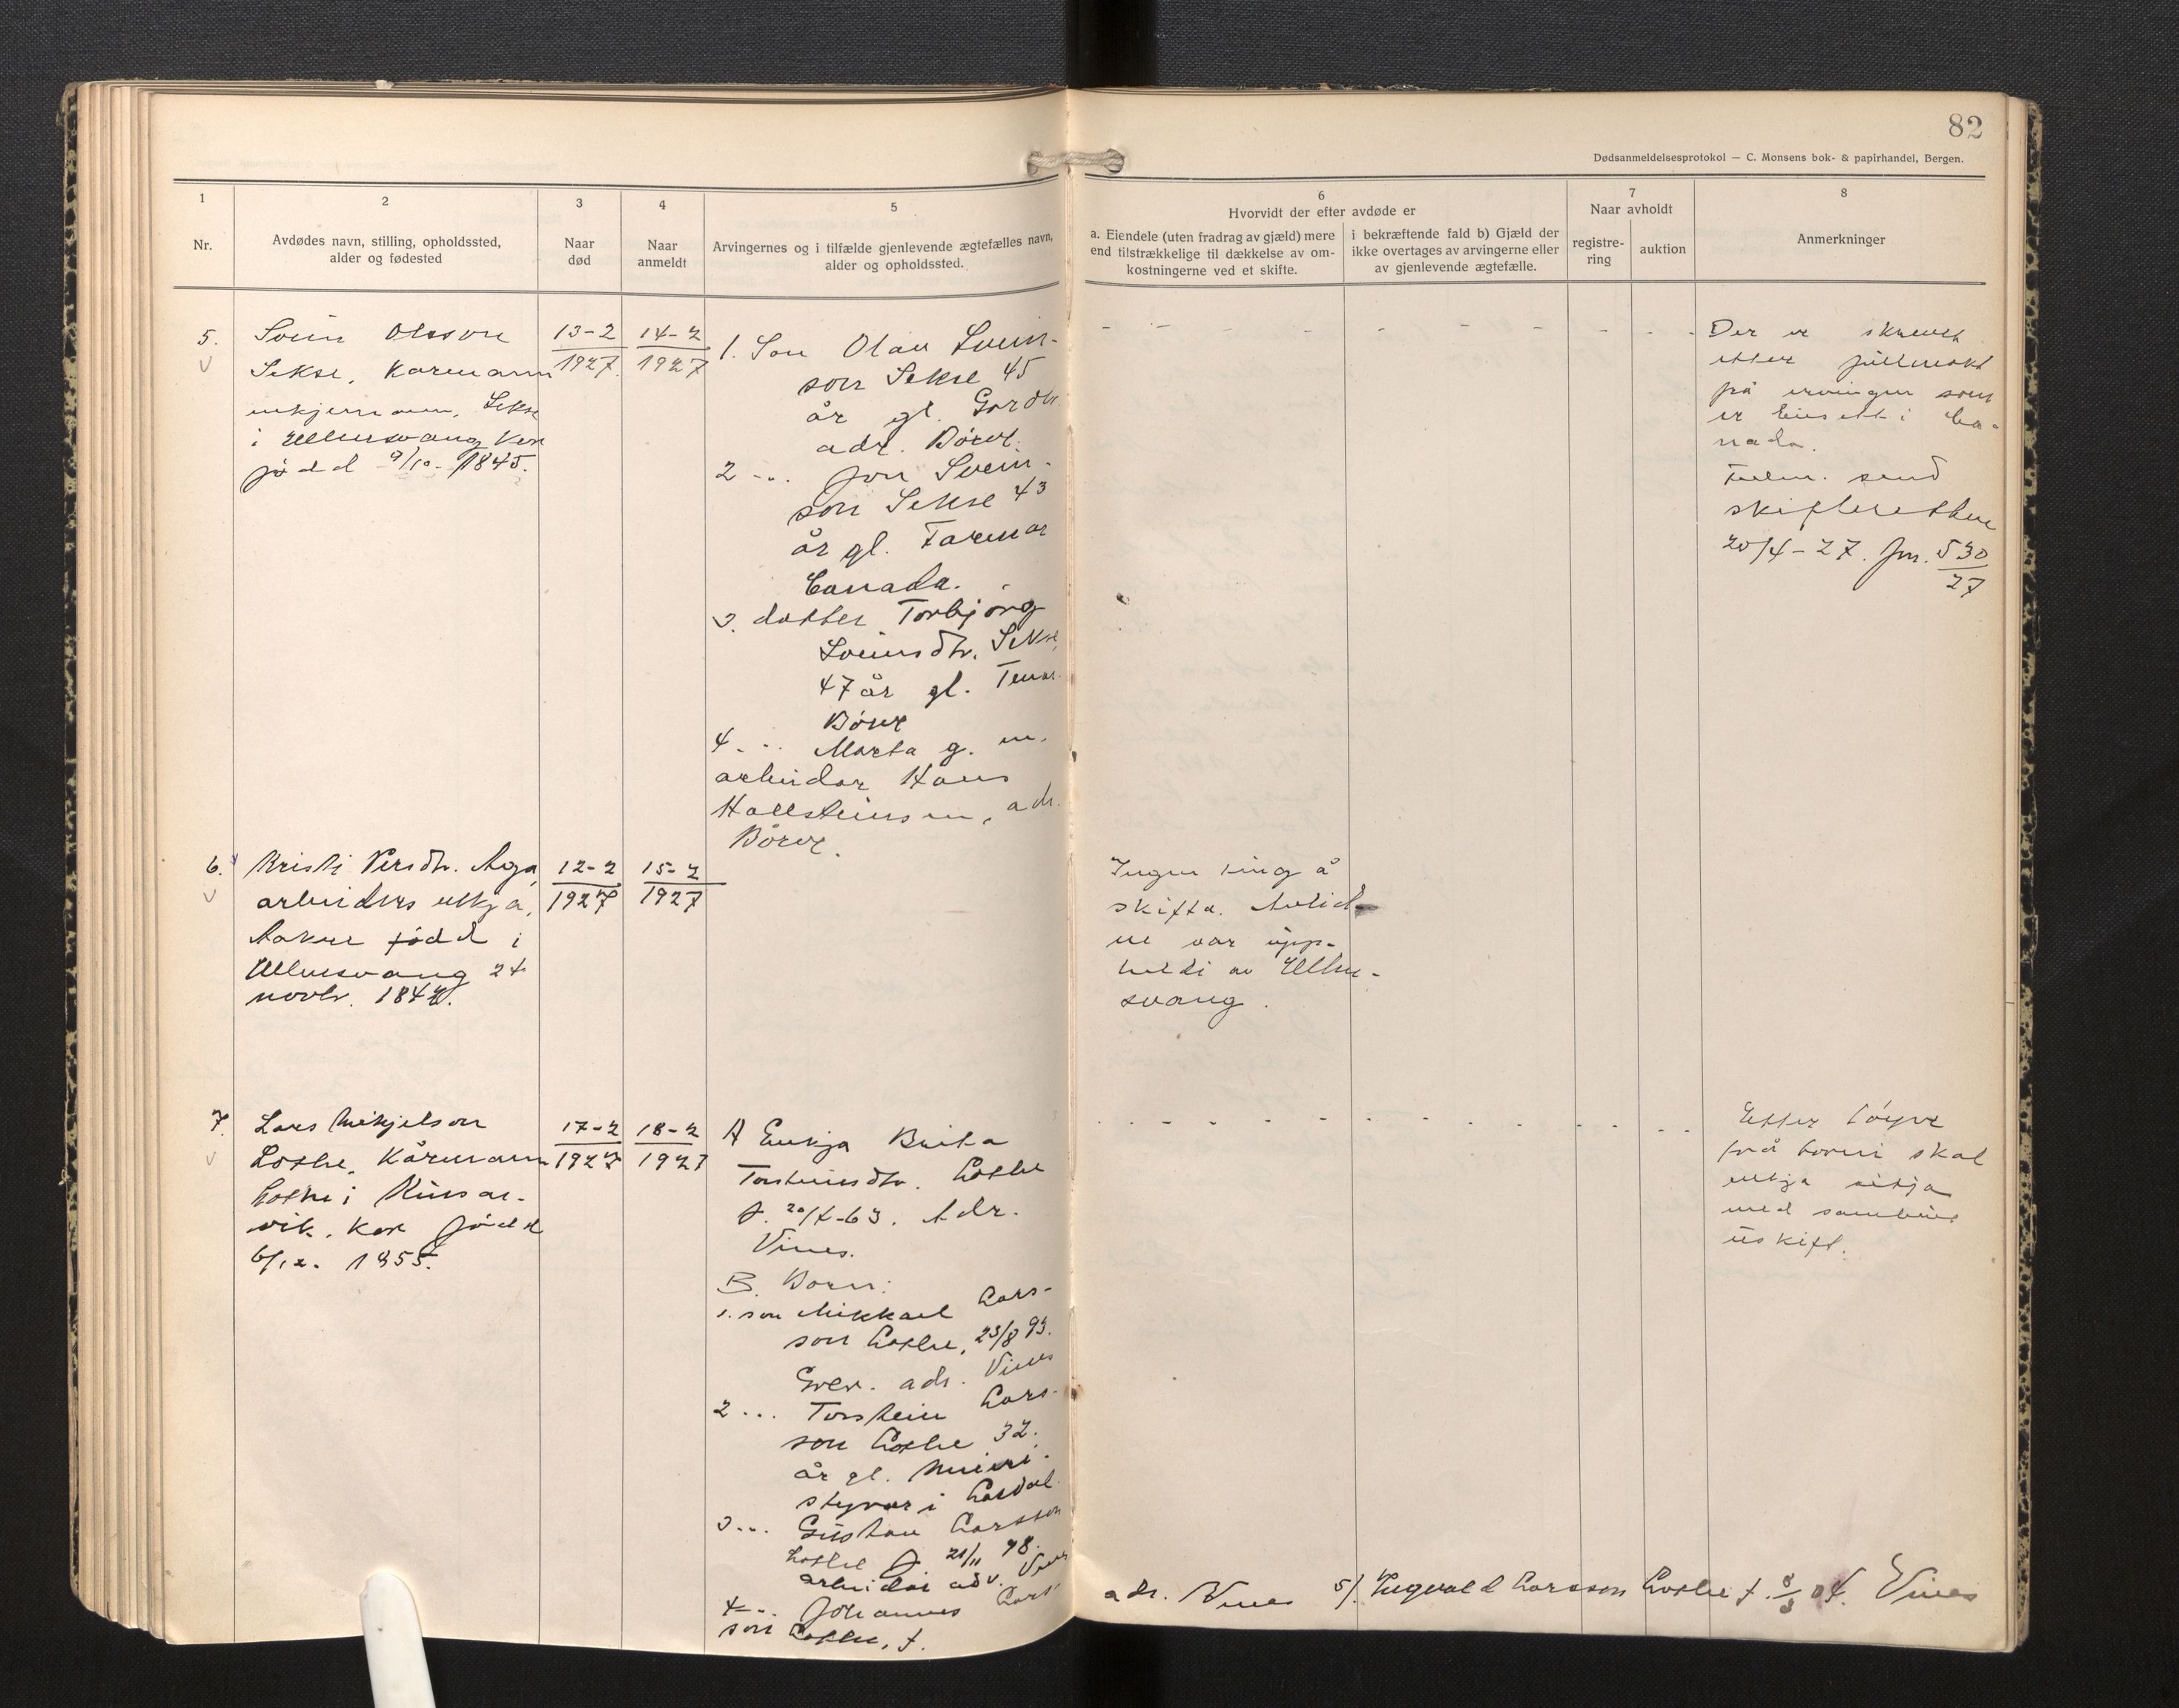 82
Dødsanmeldelsesprotokol — C. Monsens bok- & papirhandel, Bergen.
1
Nr.
2
Avdødes navn, stilling, opholdssted,
alder og fødested
3
Naar
død
4
Naar
anmeldt
5
Arvingernes og i tilfælde gjenlevende ægtefælles navn,
alder og opholdssted.
6
Hvorvidt der efter avdøde er
a. Eiendele (uten fradrag av gjæld) mere
end tilstrækkelige til dækkelse av om-
kostningerne ved et skifte.
i bekræftende fald b) Gjæld der
ikke overtages av arvingerne eller
av gjenlevende ægtefælle.
7
Naar avholdt
registre-
ring
auktion
8
Anmerkninger
5.
Svein Olsson
Sekse, Kårmann
enkjemann, Sekse
i Ullensvang her
född 9/10 - 1845.
13-2
1927
14-2
1927
1. Son Olav Svein-
son Sekse 45
år gl. Gardbr.
adr. Börve.
2 -.. Jon Svein-
son Sekse 43
år gl. Farmar
Canada.
3. dotter Torbjörg
Sveinsdtr. Sekse,
47 år gl. Tenar
Börve
4 - .. Marta g. m.
arbeidar Hans
Hallsteinsen, adr.
Börve.
Der er skrevet
etter fullmakt
på ervingen som
er busett i Ca-
nada.
Fulm. send
skifteretten
20/4-27. Jnr. 530
27
6.
Kristi Persdtr. Aga,
arbeiders enkja,
Aakre född i
Ullensvang 24
novbr. 1847.
12-2
1927
15-2
1927
Ingen ting å
skifta. Avlid-
ne var upp-
heldi av Ullen-
svang.
7.
Lars Mikjelson
Lothe, Kårmann
Lothe i Kinsar-
vik. her född
6/12. 1855.
17-2
1927
18-2
1927
A Enkja Brita
Torsteinsdtr. Lothe
f. 20/4-63. Adr.
Vines.
B. Born:
1. son Mikkael Lars-
son Lothe, 23/8 93.
Grbr. adr. Vines
2 ... Torstein Lars-
son Lothe 32.
år gl. Meieri-
styrar i
3 ... Gustav Larsson
Lothe f. 21/11 98.
arbeidar adr. Vines
4 - .. Johannes Lars-
son Lothe, f.
adr. Vines 5/. Ingvald Larsson Lothe f. 8/3 04. Vines
Etter löyve
frå borni skal
enkja sitja
med sambuet
uskift.